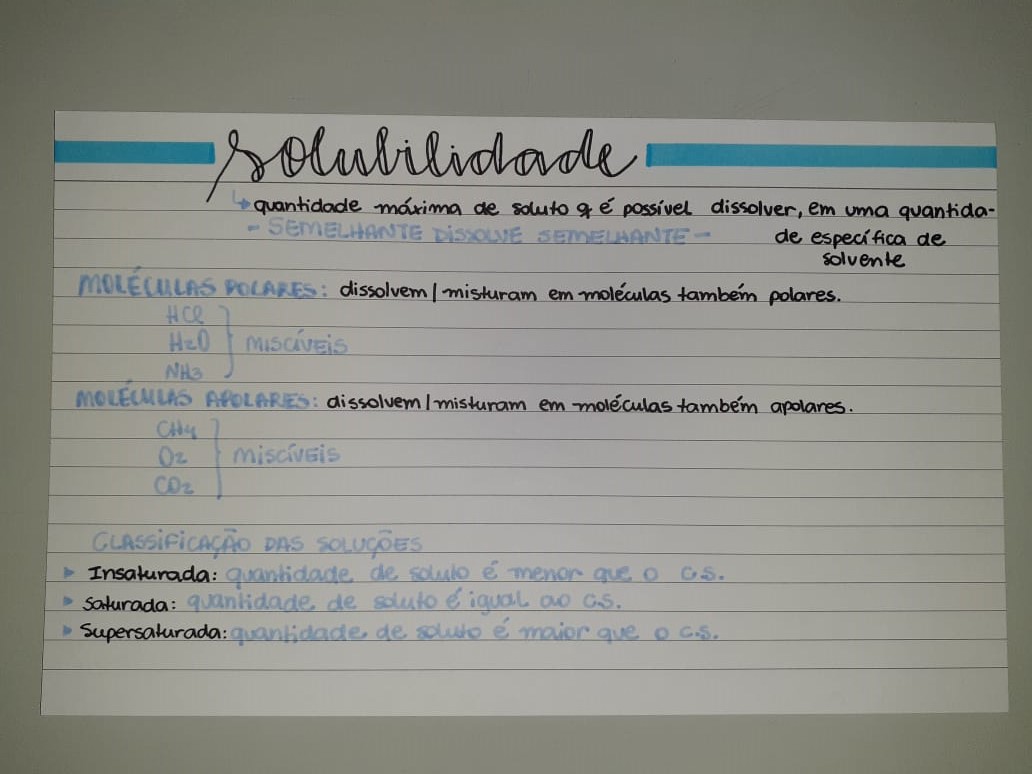 solubilidade
↳ quantidade máxima de soluto q é possível dissolver, em uma quantida-
- SEMELHANTE DISSOLVE SEMELHANTE - de específica de
solvente
MOLÉCULAS POLARES: dissolvem/misturam em moléculas também polares.
HCl
H2O } MISCÍVEIS
NH3
MOLÉCULAS APOLARES: dissolvem/misturam em moléculas também apolares.
CH4
O2 } MISCÍVEIS
CO2
CLASSIFICAÇÃO DAS SOLUÇÕES
▸ Insaturada: quantidade de soluto é menor que o C.S.
▸ Saturada: quantidade de soluto é igual ao C.S.
▸ Supersaturada: quantidade de soluto é maior que o C.S.